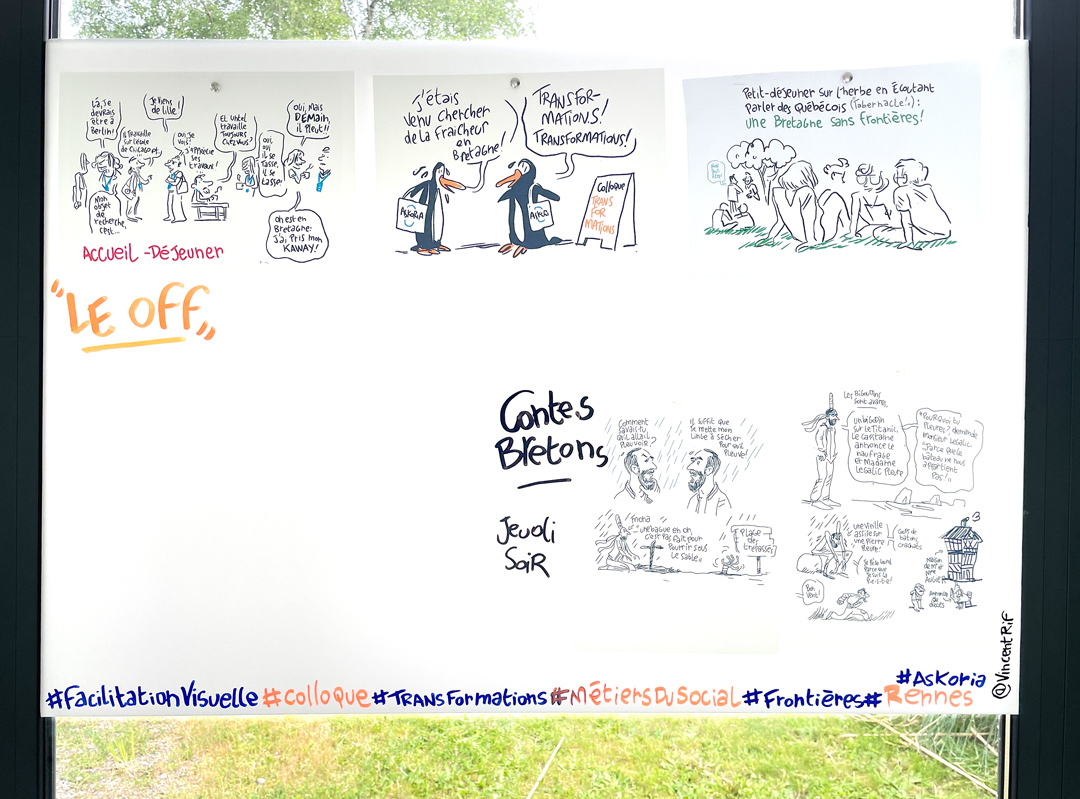 Là, je
devrais
être à
Berlin!
Je viens
de Lille!
Il travaille
sur l'école
de Chicago et
oui, je
vois!
J'apprécie
ses
travaux!
Et untel
travaille
toujours
chez vous?
oui,
oui
il se
tasse,
il se
tasse!
oui, mais
DEMAIN,
il pleut!!
Mon
objet
de
recherche,
c'est...
oh est en
Bretagne:
J'ai pris mon
KAWAY!
ACCUEIL - DéJeuner
J'étais
venu chercher
de la fraicheur
en
Bretagne!
TRANSFOR-
MATIONS!
TRANSFORMATIONS!
ASKORIA
Colloque
TRANS
FOR
MATIONS
Petit-déjeuner sur l'herbe en Écoutant
Parler des Québécois (Tabernacle!):
une Bretagne sans frontières!
"LE OFF"
Contes
Bretons
Jeudi
Soir
Comment
savais-tu
qu'il allait
pleuvoir?
il suffit que
je mette mon
linge à sécher
pour qu'il
pleuve!
une bague eh oh
c'est pas fait pour
pourrir sous
le sable
Plage
des
trépassés
Les Bigoudins
sont avares
un bigoudin
sur le Titanic
Le capitaine
annonce le
naufrage
et Madame
Legalic pleure
"Pourquoi tu
pleures? demande
Monsieur Legalic
-Parce que le
bateau ne nous
appartient
pas!"
une vieille
assise sur
une pierre
pleure:
Bon
vent!
#FacilitationVisuelle #colloque #TRANSFormations #MétiersDuSocial #Frontières #Rennes
#Askoria
@VincentRif